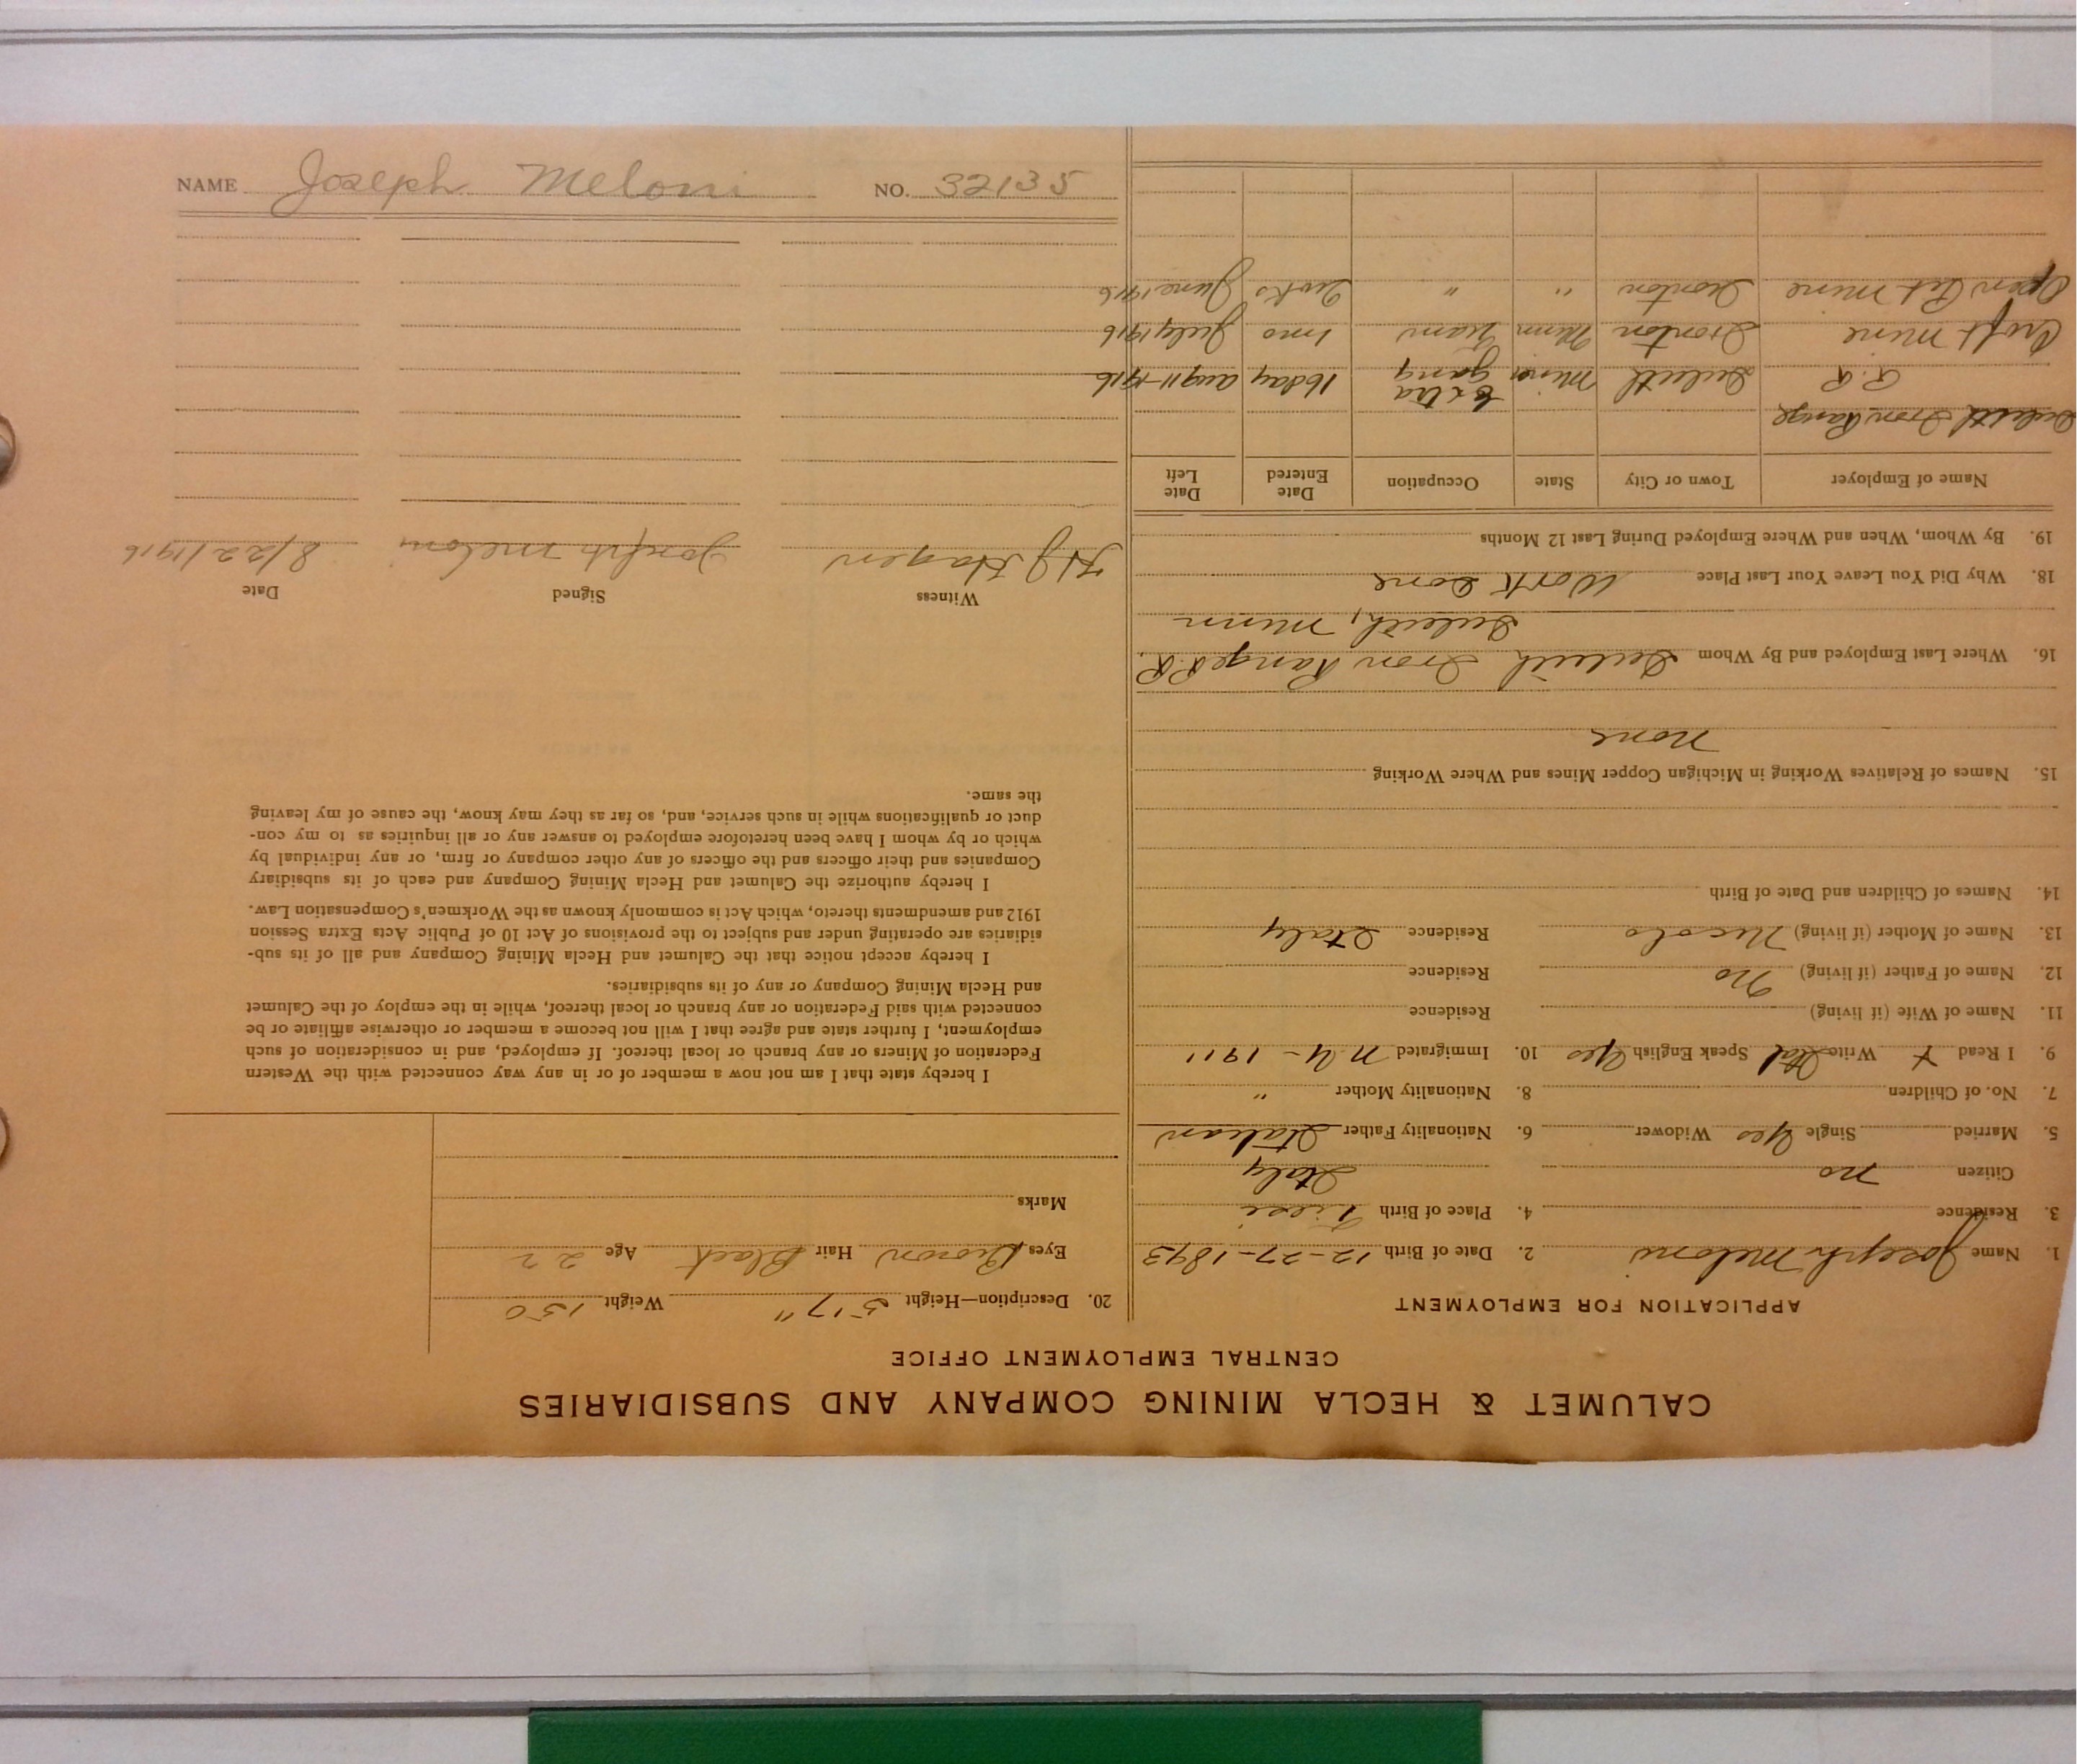 CALUMET & HECLA MINING COMPANY AND SUBSIDIARIES
CENTRAL EMPLOYMENT OFFICE
APPLICATION FOR EMPLOYMENT
1. Name Joseph Meloni 2. Date of Birth 12-27-1893
3. Residence 4. Place of Birth
Citizen no Italy
5. Married Single Yes Widower 6. Nationality Father Italian
7. No. of Children 8. Nationality Mother "
9. I Read Write Ital Speak English Yes 10. Immigrated N.Y - 1911
11. Name of Wife (if living) Residence
12. Name of Father (if living) no Residence
13. Name of Mother (if living) Residence Italy
14. Names of Children and Date of Birth
15. Names of Relatives Working in Michigan Copper Mines and Where Working
None
16. Where Last Employed and By Whom Duluth Iron Range R.R.
Duluth, Minn
18. Why Did You Leave Your Last Place Work Done
19. By Whom, When and Where Employed During Last 12 Months
Name of Employer Town or City State Occupation Date Entered Date Left
Duluth Iron Range
R.R Duluth Minn Extra gang 16 day Aug 11-1916
Croft Mine Ironton Minn Tram 1 mo July 1916
Open Pit Mine Ironton " " 2 wks June 1916
20. Description—Height 5'7" Weight 150
Eyes Brown Hair Black Age 22
Marks
I hereby state that I am not now a member of or in any way connected with the Western
Federation of Miners or any branch or local thereof. If employed, and in consideration of such
employment, I further state and agree that I will not become a member or otherwise affiliate or be
connected with said Federation or any branch or local thereof, while in the employ of the Calumet
and Hecla Mining Company or any of its subsidiaries.
I hereby accept notice that the Calumet and Hecla Mining Company and all of its sub-
sidiaries are operating under and subject to the provisions of Act 10 of Public Acts Extra Session
1912 and amendments thereto, which Act is commonly known as the Workmen's Compensation Law.
I hereby authorize the Calumet and Hecla Mining Company and each of its subsidiary
Companies and their officers and the officers of any other company or firm, or any individual by
which or by whom I have been heretofore employed to answer any or all inquiries as to my con-
duct or qualifications while in such service, and, so far as they may know, the cause of my leaving
the same.
Witness Signed Date
H J Hagen Joseph Meloni 8/22/1916
NAME Joseph Meloni NO. 32135